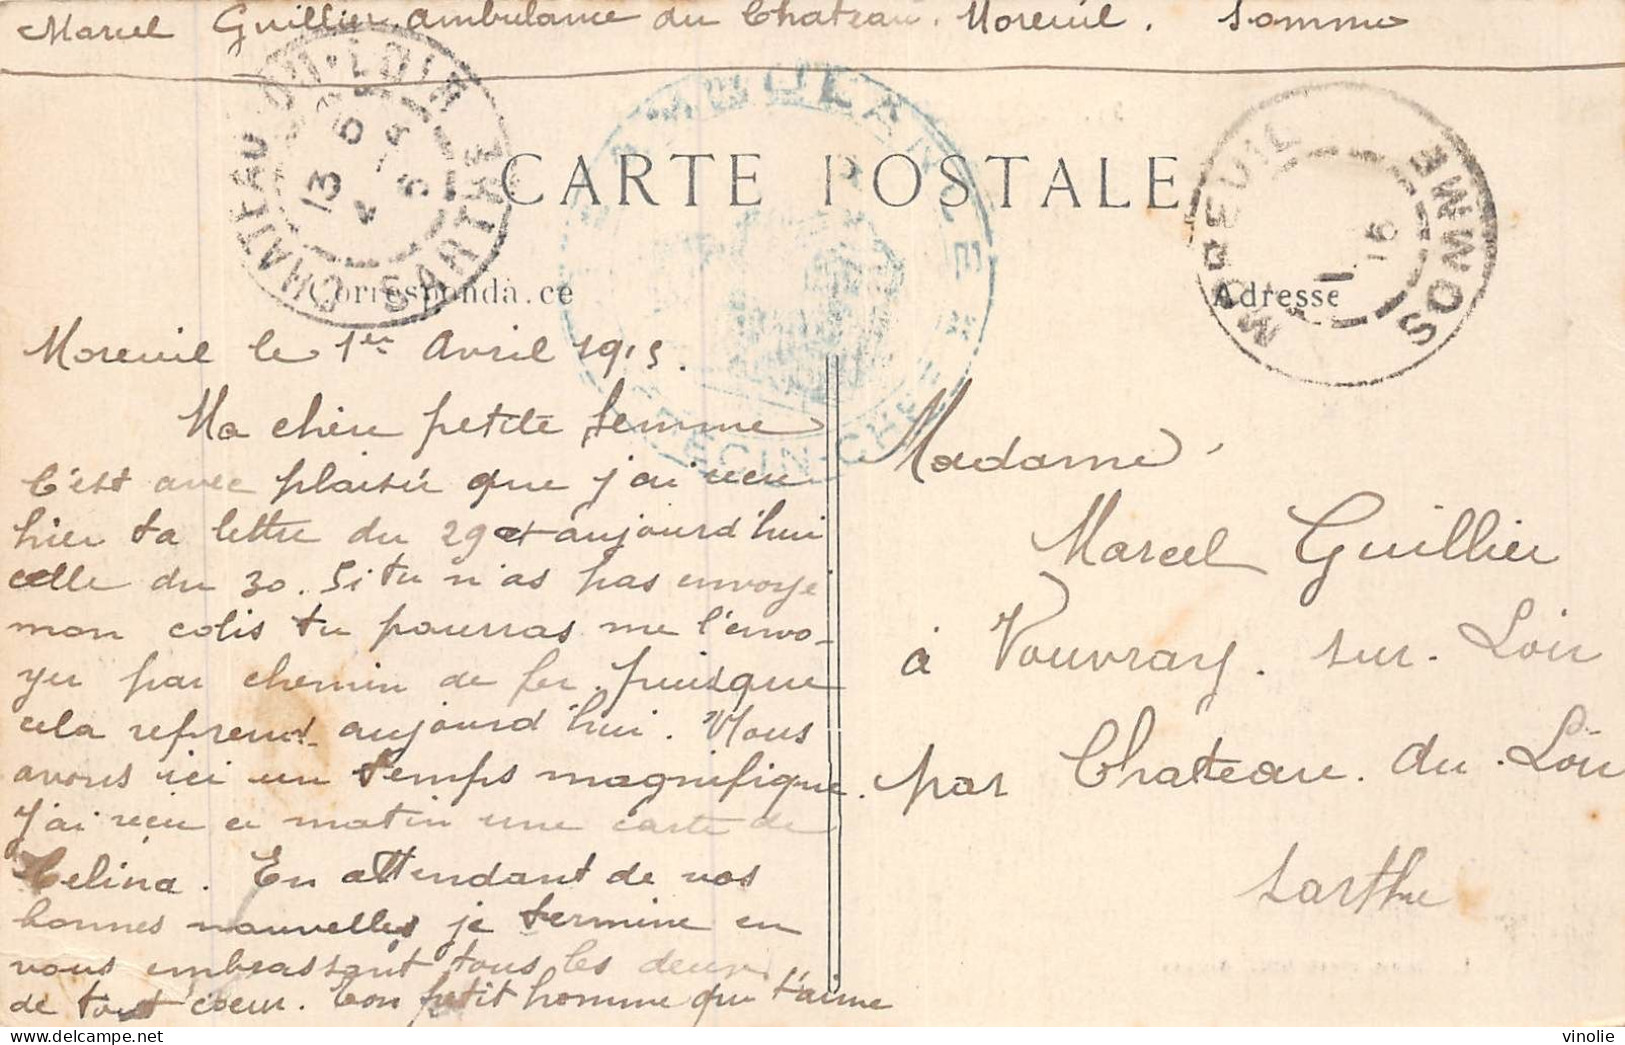 Marcel Guillier. ambulance du Chateau. Moreuil. Somme
CHATEAU-DU-LOIR
13 5
4
SARTHE
AMBULANCE
MÉDECIN CHEF
MOREUIL
15
SOMME
CARTE POSTALE
Correspondance
Adresse
Moreuil le 1er Avril 1915.
Ma chère petite femme
C'est avec plaisir que j'ai reçu
hier ta lettre du 29 et aujourd'hui
celle du 30. Si tu n'as pas envoyé
mon colis tu pourras me l'envo-
yer par chemin de fer. puisque
cela reprend aujourd'hui. Nous
avons ici un temps magnifique.
J'ai reçu ce matin une carte de
Celina. En attendant de vos
bonnes nouvelles je termine en
vous embrassant tous les deux
de tout coeur. Ton petit homme qui t'aime
Madame
Marcel Guillier
à Vouvray. sur. Loir
par Chateau. du. Loir
Sarthe
vinolie